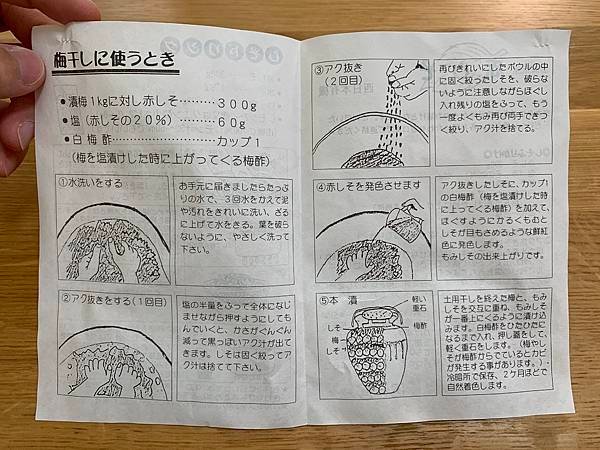 梅干しに使うとき
●漬梅1kgに対し赤しそ………300g
●塩(赤しその20%)…………60g
●白梅酢………………カップ1
(梅を塩漬けした時に上がってくる梅酢)
①水洗いをする
お手元に届きましたらたっぷ
りの水で、3回水をかえて泥
や汚れをきれいに洗い、ざる
に上げて水をきる。葉を破ら
ないように、やさしく洗って
下さい。
②アク抜きをする(1回目)
塩の半量をふって全体になじ
ませながら押すようにしても
んでいくと、かさがぐんぐん
減って黒っぽいアク汁が出て
きます。しそは固く絞ってア
ク汁は捨てて下さい。
③アク抜き
(2回目)
再びきれいにしたボウルの中
に固く絞ったしそを、破らな
いように注意しながらほぐし
入れ残りの塩をふって、もう
一度よくもみ再び両手できつ
く絞り、アク汁を捨てる。
④赤しそを発色させます
アク抜きしたしそに、カップ1
の白梅酢(梅を塩漬けした時
に上ってくる梅酢)を加えて、
ほぐすようにかるくもむと
しそが目もさめるような鮮紅
色に発色します。
もみしその出来上がりです。
⑤本 漬
軽い
重石
梅酢
しそ
梅
しそ
土用干しを終えた梅と、もみ
しそを交互に重ね、もみしそ
が一番上にくるように漬け込
みます。白梅酢をひたひたに
なるまで入れ、押し蓋をして、
軽く重石をします。(梅やし
そが梅酢からでているとカビ
が発生する事があります。)
冷暗所で保存、2ケ月ほどで
自然着色します。